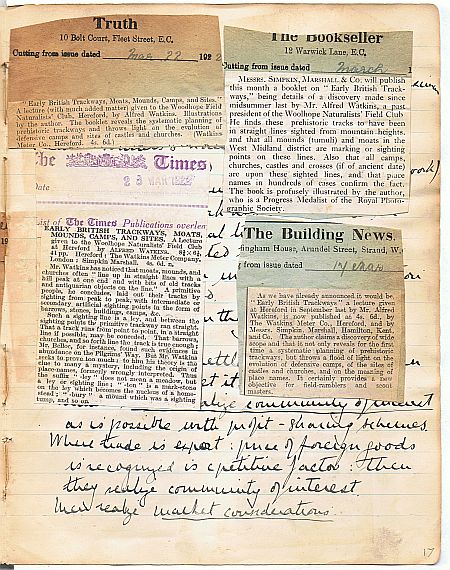 Truth
10 Bolt Court, Fleet Street, E.C.
Cutting from issue dated Mar 22 192
"Early British Trackways, Moats, Mounds, Camps, and Sites."
A lecture (with much added matter) given to the Woolhope Field
Naturalists' Club, Hereford, by Alfred Watkins. Illustrations
by the author. The booklet reveals the systematic planning of
prehistoric trackways and throws light on the evolution of
defensive camps and sites of castles and churches. (Watkins
Meter Co., Hereford. 4s. 6d.)
The Bookseller
12 Warwick Lane, E.C.
Cutting from issue dated March 1
MESSRS. SIMPKIN, MARSHALL & CO. will publish
this month a booklet on "Early British Track-
ways," being details of a discovery made since
midsummer last by Mr. Alfred Watkins, a past
president of the Woolhope Naturalists' Field Club
He finds these prehistoric tracks to have been
in straight lines sighted from mountain heights,
and that all mounds (tumuli) and moats in the
West Midland district are marking or sighting
points on these lines. Also that all camps,
churches, castles and crosses (if of ancient date)
are upon these sighted lines, and that place
names in hundreds of cases confirm the fact.
The book is profusely illustrated by the author,
who is a Progress Medalist of the Royal Photo-
graphic Society.
The Times
Date
23 MAR
List of The Times Publications overleaf
EARLY BRITISH TRACKWAYS, MOATS,
MOUNDS, CAMPS, AND SITES. A Lecture
given to the Woolhope Naturalists' Field Club
at Hereford by ALFRED WATKINS. 8¾ × 6¼,
41 pp. Hereford: The Watkins Meter Company.
London: Simpkin Marshall. 4s. 6d. n.
Mr. Watkins has noticed that moats, mounds, and
churches often "line up in straight lines with a
hill peak at one end and with bits of old tracks
and antiquarian objects on the line." A primitive
people, he concludes, laid out their tracks by
sighting from peak to peak, with intermediate or
secondary artificial sighting points in the form of
barrows, stones, buildings, camps, &c.
Such a sighting line is a ley, and between the
sighting points the primitive trackway ran straight.
That a track ran from point to point, in a straight
line if possible, may be conceded. That barrows,
churches, and so forth line the track is true enough.
Mr. Belloc, for instance, found such evidence in
abundance on the Pilgrims' Way. But Mr. Watkins
seeks to prove too much: to him his theory is the
clue to many a mystery, including the origin of
place-names, formerly wrongly interpreted. Thus
the suffix "-ley" does not mean a meadow, but
a ley or sighting line; "-ton" is a mark-stone
on the ley which becomes the nucleus of a home-
stead; "-bury" a mound which was a sighting
tump, and so on.
The Building News
Effingham House, Arundel Street, Strand, W.
from issue dated 17 Mar
As we have already announced it would be,
"Early British Trackways" a lecture given
at Hereford in September last by Mr. Alfred
Watkins, is now published at 4s. 6d., by
The Watkins Meter Co., Hereford, and by
Messrs. Simpkin, Marshall, Hamilton, Kent,
and Co. The author claims a discovery of wide
scope and that is not only reveals for the first
time a systematic planning of prehistoric
trackways, but throws a flood of light on the
evolution of defensive camps, of the sites of
castles and churches, and on the meaning of
place names. It certainly provides a new
objective for field-ramblers and scout
masters.
realize community of interest
as is possible with profit-sharing schemes.
Where trade is export: price of foreign goods
is recognized is competitive factor: then
they realize community of interest.
Men realize market considerations.
17